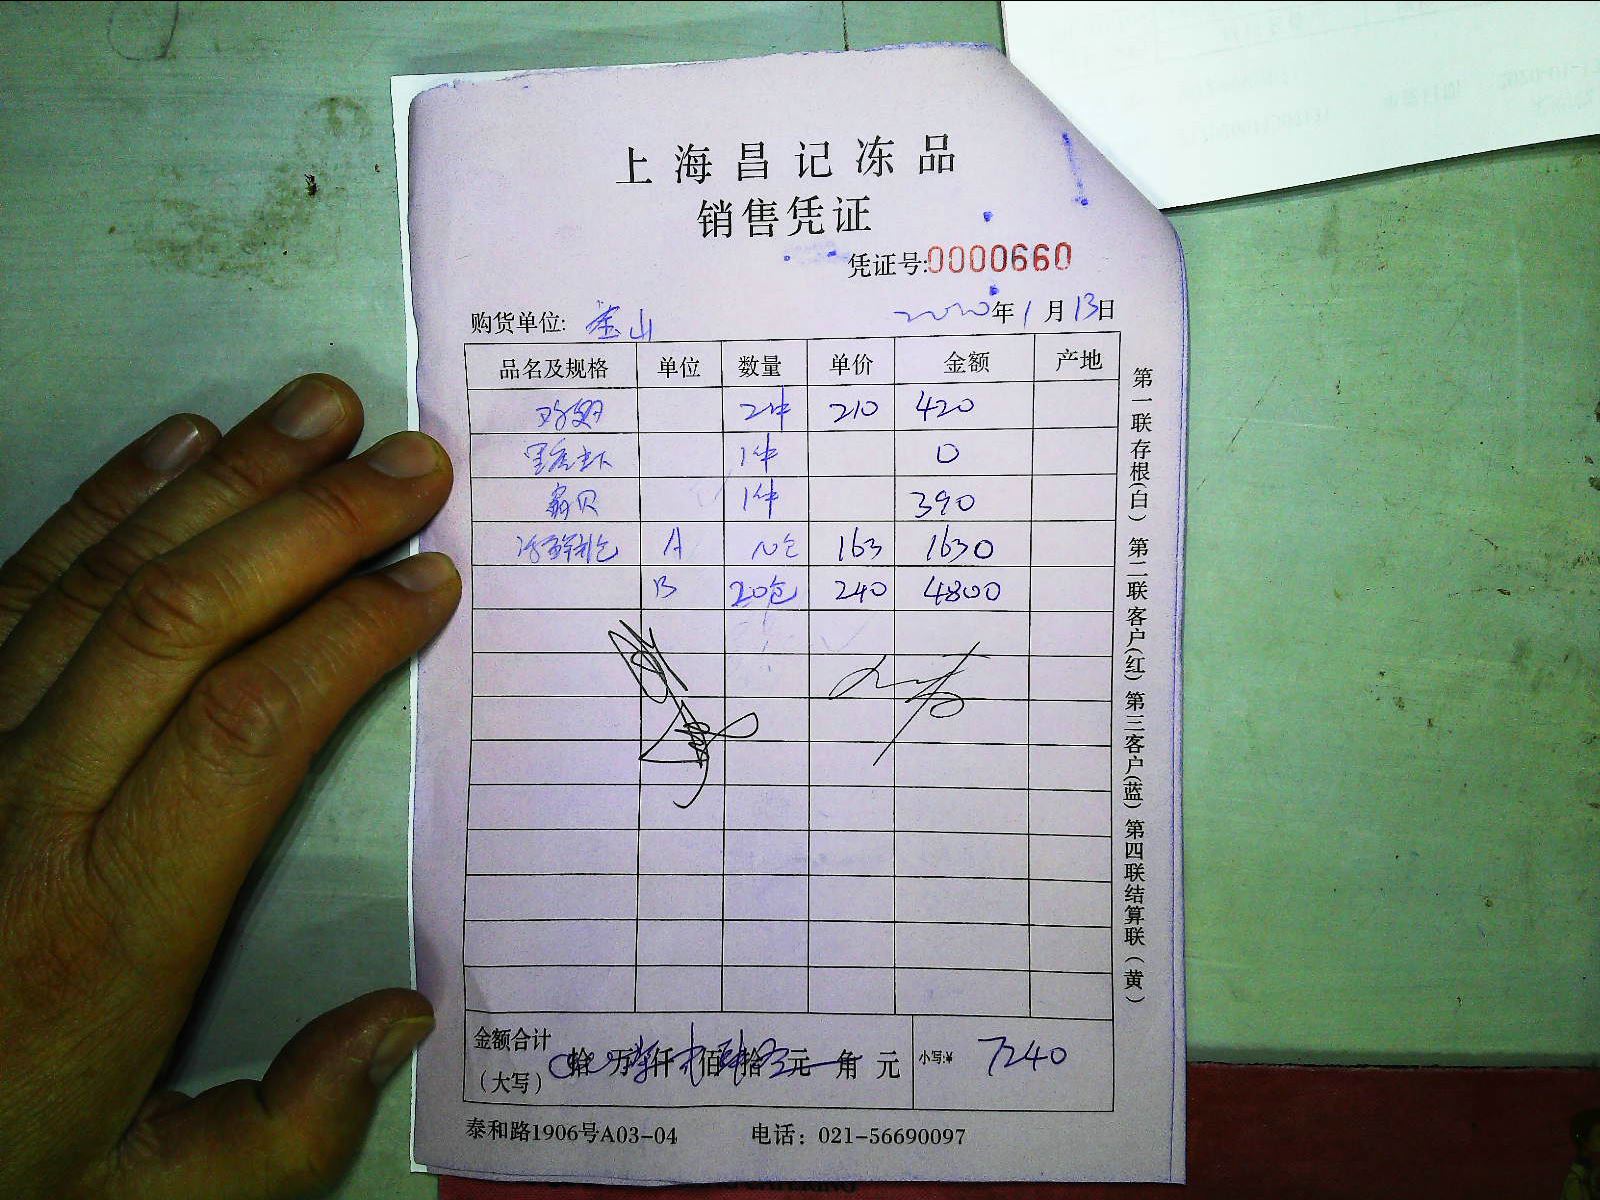 上海昌记冻品
销售凭证
凭证号:0000660
购货单位: 金山 2020年1月13日
品名及规格 单位 数量 单价 金额 产地
鸡翅 2件 210 420
黑虎虾 1件 0
扇贝 1件 390
冷鲜礼包 A 10包 163 1630
B 20包 240 4800
金额合计
(大写) 拾 万 仟 佰 拾 元 角 元 小写:¥ 7240
泰和路1906号A03-04 电话：021-56690097
第一联存根(白) 第二联客户(红) 第三客户(蓝) 第四联结算联(黄)